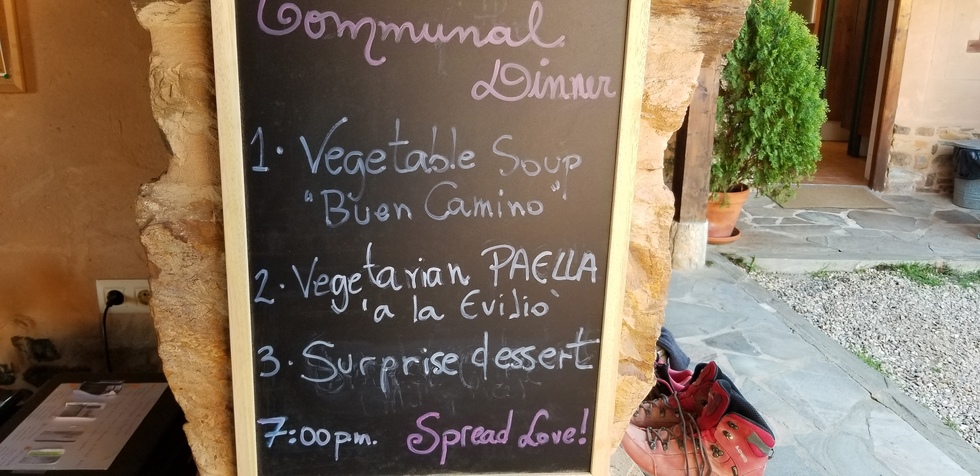 Communal
Dinner
1. Vegetable Soup
"Buen Camino"
2. Vegetarian PAELLA
'a la Evilio'
3. Surprise dessert
7:00pm. Spread Love!